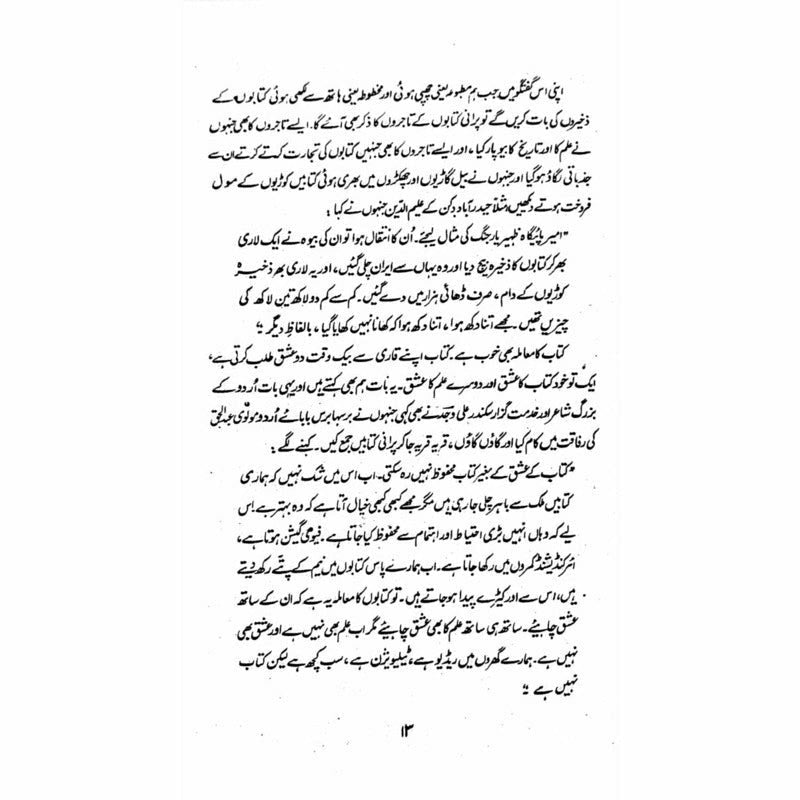 اپنی اس گفتگو میں جب ہم مطبوعہ یعنی چھپی ہوئی اور مخطوطہ یعنی ہاتھ سے لکھی ہوئی کتابوں کے
ذخیروں کی بات کریں گے تو پرانی کتابوں کے تاجروں کا ذکر بھی آئے گا۔ ایسے تاجروں کا بھی جنہوں
نے علم کا اور تاریخ کا بیوپار کیا، اور ایسے تاجروں کا بھی جنہیں کتابوں کی تجارت کرتے کرتے ان سے
جذباتی لگاؤ ہوگیا اور جنہوں نے بیل گاڑیوں اور چھکڑوں میں بھری ہوئی کتابیں کوڑیوں کے مول
فروخت ہوتے دیکھیں، مثلاً حیدرآباد دکن کے علیم الدین جنہوں نے کہا:
"امیر پائیگاہ ظہیر یار جنگ کی مثال لیجئے۔ اُن کا انتقال ہوا تو ان کی بیوہ نے ایک لاری
بھر کر کتابوں کا ذخیرہ بیچ دیا اور وہ یہاں سے ایران چلی گئیں، اور یہ لاری بھر ذخیرہ
کوڑیوں کے دام، صرف ڈھائی ہزار میں دے گئیں۔ کم سے کم دو لاکھ تین لاکھ کی
چیزیں تھیں۔ مجھے اتنا دکھ ہوا، اتنا دکھ ہوا کہ کھانا نہیں کھایا گیا، بالفاظِ دیگر"
کتاب کا معاملہ بھی خوب ہے۔ کتاب اپنے قاری سے بیک وقت دو عشق طلب کرتی ہے،
ایک تو خود کتاب کا عشق اور دوسرے علم کا عشق۔ یہ بات ہم بھی کہتے ہیں اور یہی بات اُردو کے
بزرگ شاعر اور خدمت گزار سکندر علی وجد نے بھی کہی جنہوں نے برسہا برس بابائے اُردو مولوی عبدالحق
کی رفاقت میں کام کیا اور گاؤں گاؤں، قریہ قریہ جا کر پرانی کتابیں جمع کیں۔ کہنے لگے:
"کتاب کے عشق کے بغیر کتاب محفوظ نہیں رہ سکتی۔ اب اس میں شک نہیں کہ ہماری
کتابیں ملک سے باہر چلی جارہی ہیں مگر مجھے کبھی کبھی خیال آتا ہے کہ وہ بہتر ہے اس
لیے کہ وہاں انہیں بڑی احتیاط اور اہتمام سے محفوظ کیا جاتا ہے۔ فیومی گیشن ہوتا ہے،
ائرکنڈیشنڈ کمروں میں رکھا جاتا ہے۔ اب ہمارے پاس کتابوں میں نیم کے پتے رکھ دیتے
ہیں، اس سے اور کیڑے پیدا ہوجاتے ہیں۔ تو کتابوں کا معاملہ یہ ہے کہ ان کے ساتھ
عشق چاہئے۔ ساتھ ہی ساتھ علم کا بھی عشق چاہیئے مگر اب علم بھی نہیں ہے اور عشق بھی
نہیں ہے۔ ہمارے گھروں میں ریڈیو ہے، ٹیلیویژن ہے، سب کچھ ہے لیکن کتاب
نہیں ہے"
۱۳